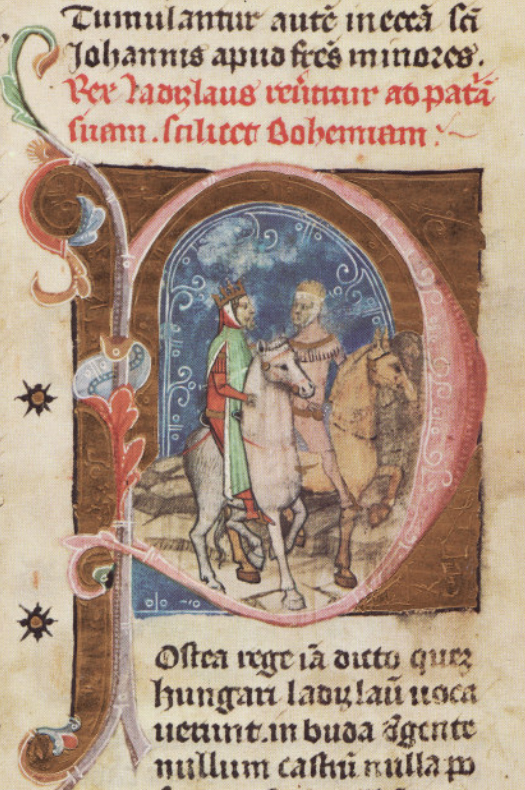 Tumulantur autē in eccā sci
Johannis apud frēs minores.
Rex ladizlaus reūtitur ad patā
suam. scilicet Bohemiam:
Ostea rege iā dicto quez
hungari ladizlaū uoca
uerunt. in buda exgente
nullum castrū nulla po